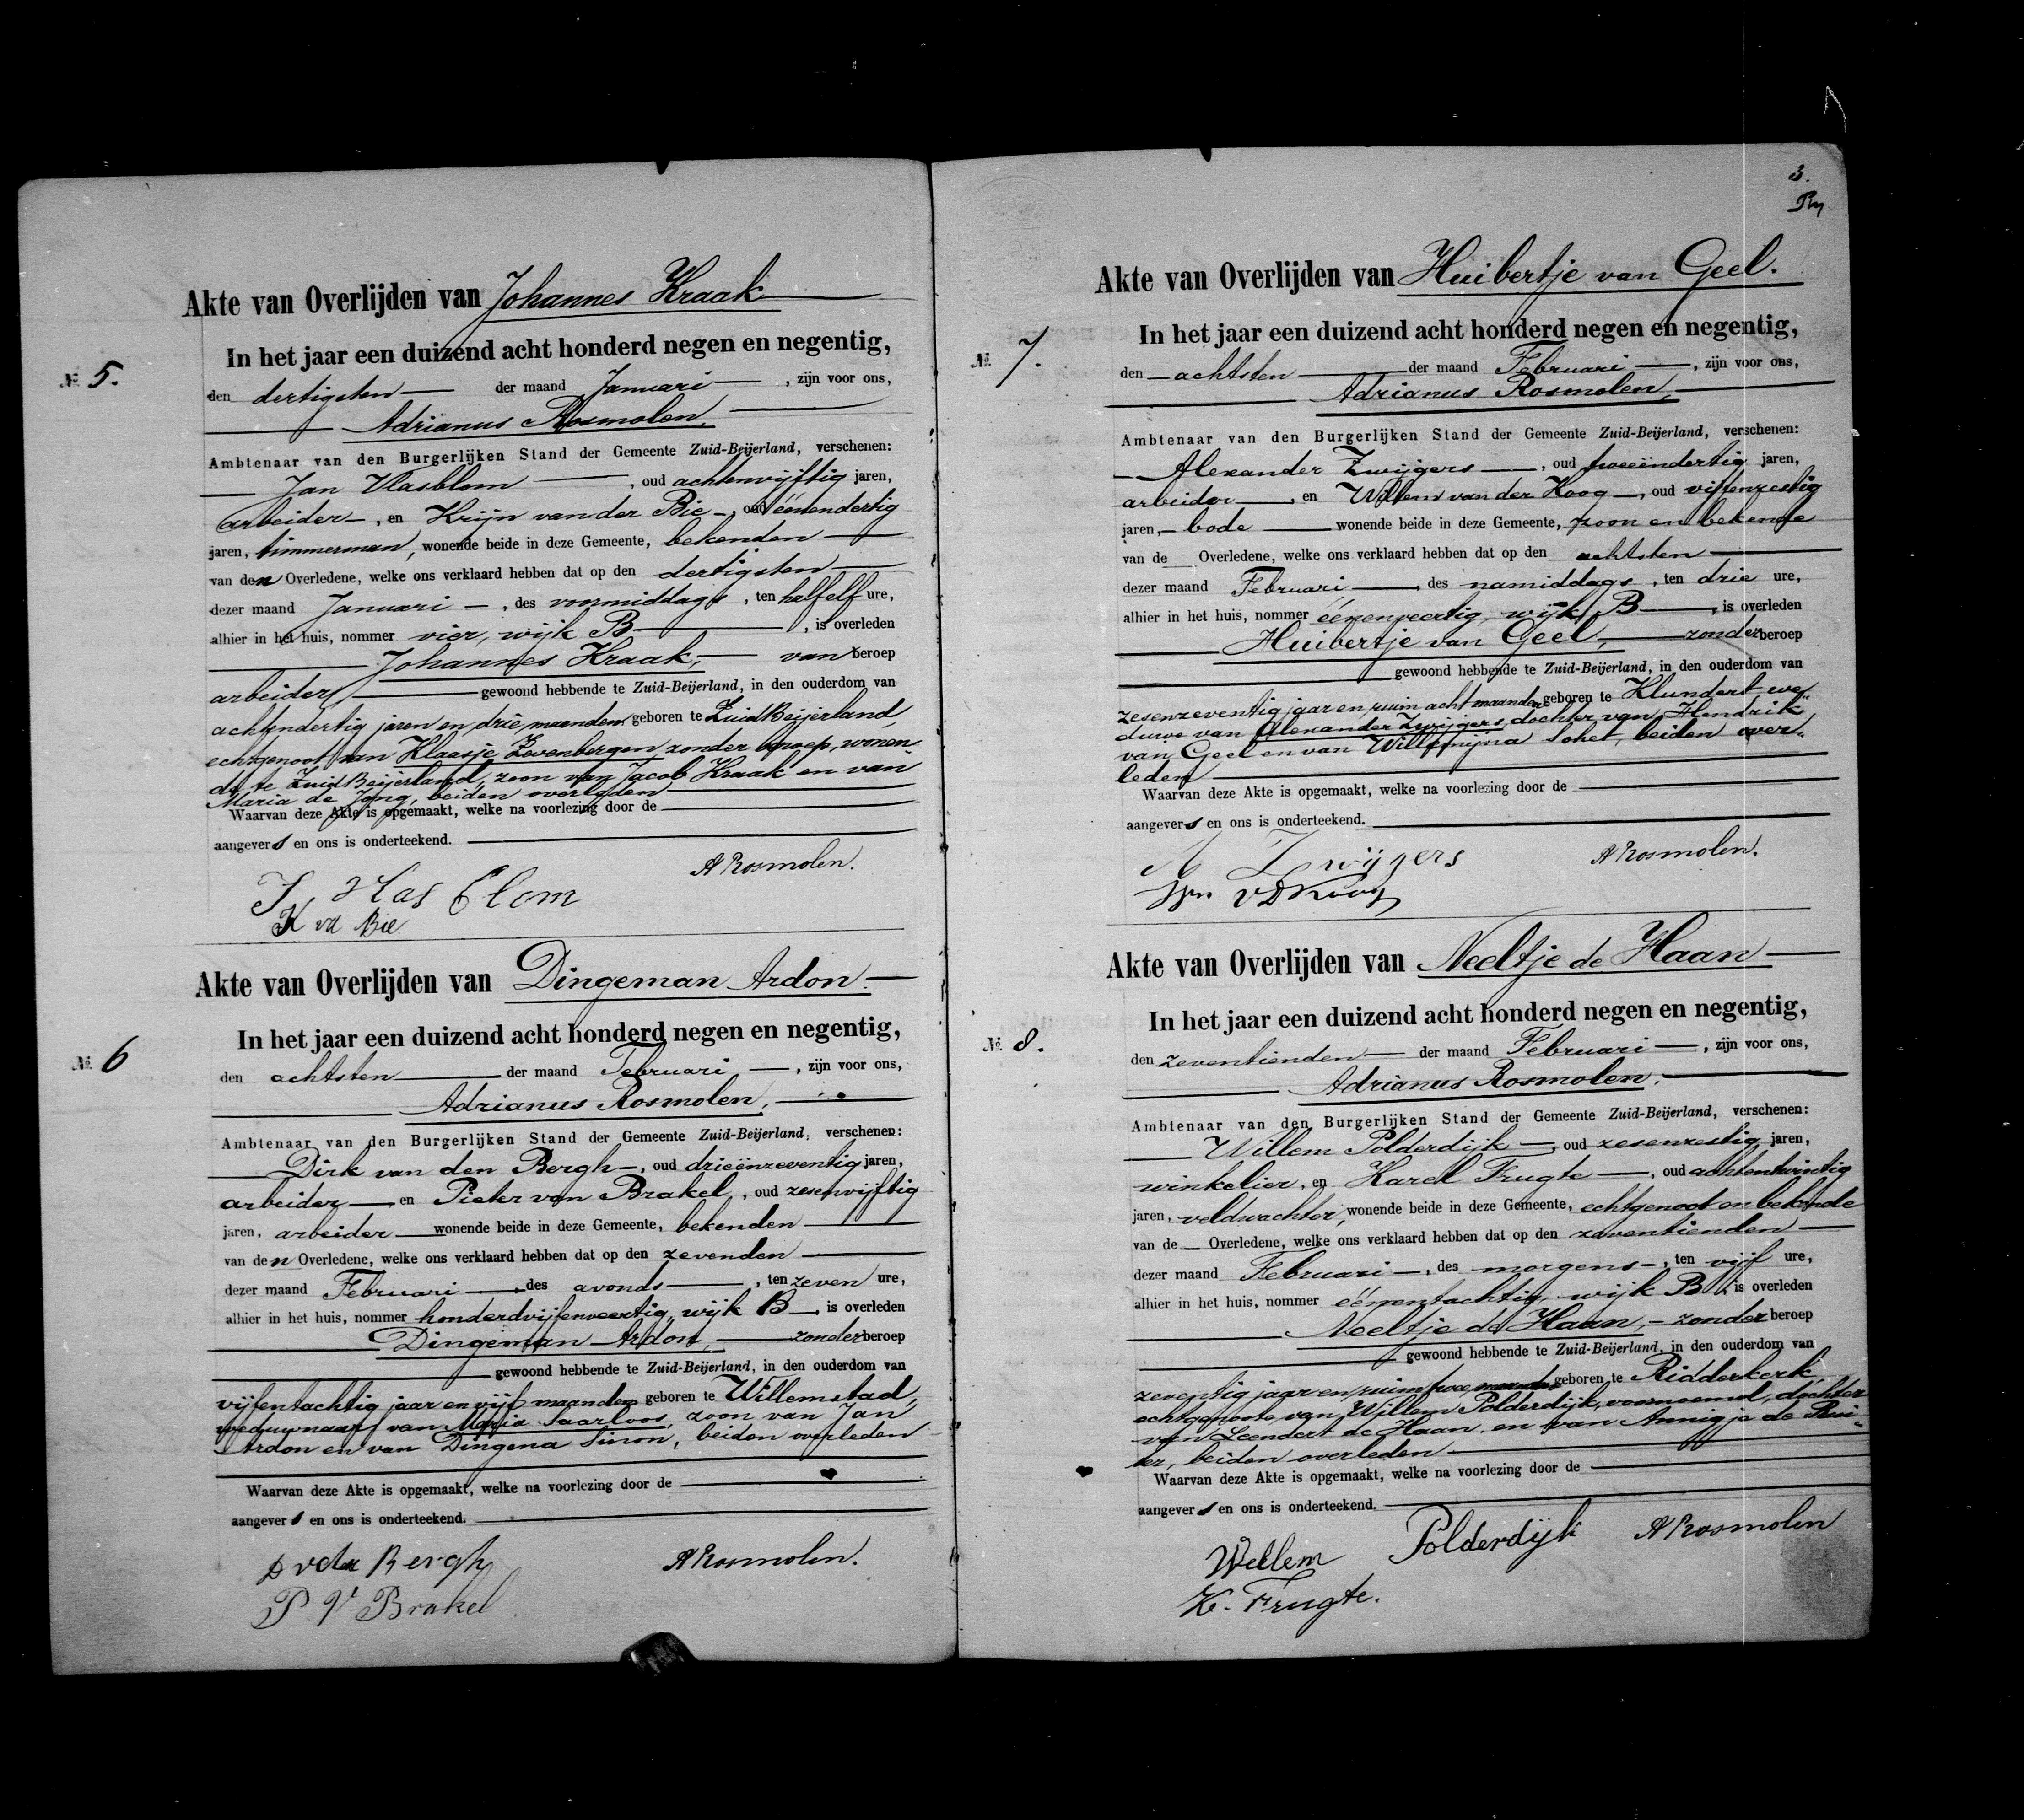 Akte van Overlijden van Johannes Kraak
In het jaar een duizend acht honderd negen en negentig,
№ 5.
den dertigsten der maand Januari, zijn voor ons,
Adrianus Rosmolen,
Ambtenaar van den Burgerlijken Stand der Gemeente Zuid-Beijerland, verschenen:
Jan Vlasblom, oud achtenvijftig jaren,
arbeider, en Krijn van der Bie, oud éénendertig
jaren, timmerman, wonende beide in deze Gemeente, bekenden
van den Overledene, welke ons verklaard hebben dat op den dertigsten
dezer maand Januari, des voormiddags, ten half elf ure,
alhier in het huis, nommer vier, wijk B, is overleden
Johannes Kraak, van beroep
arbeider, gewoond hebbende te Zuid-Beijerland, in den ouderdom van
achtendertig jaren en drie maanden, geboren te Zuid Beijerland
echtgenoot van Klaasje Zevenbergen zonder beroep, wonen-
de te Zuid Beijerland, zoon van Jacob Kraak en van
Maria de Jong, beiden overleden
Waarvan deze Akte is opgemaakt, welke na voorlezing door de
aangevers en ons is onderteekend.
A Rosmolen.
J. Vlas blom
K vd Bie
Akte van Overlijden van Dingeman Ardon.
In het jaar een duizend acht honderd negen en negentig,
№ 6
den achtsten der maand Februari, zijn voor ons,
Adrianus Rosmolen,
Ambtenaar van den Burgerlijken Stand der Gemeente Zuid-Beijerland, verschenen:
Dirk van den Bergh, oud drieënzeventig jaren,
arbeider en Pieter van Brakel, oud zesenvijftig
jaren, arbeider wonende beide in deze Gemeente, bekenden
van den Overledene, welke ons verklaard hebben dat op den zevenden
dezer maand Februari, des avonds, ten zeven ure,
alhier in het huis, nommer honderdvijfenveertig, wijk B, is overleden
Dingeman Ardon, zonder beroep
gewoond hebbende te Zuid-Beijerland, in den ouderdom van
vijfentachtig jaar en vijf maanden geboren te Willemstad,
weduwnaar van Maria Saarloos, zoon van Jan
Ardon en van Dingena Sinon, beiden overleden
Waarvan deze Akte is opgemaakt, welke na voorlezing door de
aangevers en ons is onderteekend.
D vden Bergh
A Rosmolen.
P v Brakel
3.
Akte van Overlijden van Huibertje van Geel.
In het jaar een duizend acht honderd negen en negentig,
№ 7.
den achtsten der maand Februari, zijn voor ons,
Adrianus Rosmolen,
Ambtenaar van den Burgerlijken Stand der Gemeente Zuid-Beijerland, verschenen:
Alexander Zwijgers, oud tweeëndertig jaren,
arbeider, en Willem van der Koog, oud vijfenzestig
jaren, bode wonende beide in deze Gemeente, zoon en bekende
van de Overledene, welke ons verklaard hebben dat op den achtsten
dezer maand Februari, des namiddags, ten drie ure,
alhier in het huis, nommer éénenveertig, wijk B, is overleden
Huibertje van Geel, zonder beroep
gewoond hebbende te Zuid-Beijerland, in den ouderdom van
zesenzeventig jaar en ruim acht maanden geboren te Klundert, we-
duwe van Alexander Zwijgers, dochter van Hendrik
van Geel en van Willemijna Sohet, beiden over-
leden
Waarvan deze Akte is opgemaakt, welke na voorlezing door de
aangevers en ons is onderteekend.
A Zwijgers
A Rosmolen.
Wm vd Koog
Akte van Overlijden van Neeltje de Haan
In het jaar een duizend acht honderd negen en negentig,
№ 8.
den zeventienden der maand Februari, zijn voor ons,
Adrianus Rosmolen,
Ambtenaar van den Burgerlijken Stand der Gemeente Zuid-Beijerland, verschenen:
Willem Polderdijk, oud zesenzestig jaren,
winkelier, en Karel Frugte, oud achtentwintig
jaren, veldwachter, wonende beide in deze Gemeente, echtgenoot en bekende
van de Overledene, welke ons verklaard hebben dat op den zeventienden
dezer maand Februari, des morgens, ten vijf ure,
alhier in het huis, nommer éénentachtig, wijk B, is overleden
Neeltje de Haan, zonder beroep
gewoond hebbende te Zuid-Beijerland, in den ouderdom van
zeventig jaar en ruim twee maanden geboren te Ridderkerk,
echtgenoote van Willem Polderdijk, voornoemd, dochter
van Leendert de Haan en van Annigje de Rui-
ter, beiden overleden
Waarvan deze Akte is opgemaakt, welke na voorlezing door de
aangevers en ons is onderteekend.
Willem Polderdijk
A Rosmolen
K. Frugte.